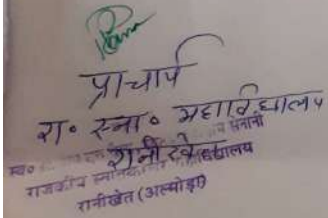 प्राचार्य
रा० स्ना० महाविद्यालय
रानीखेत
स्व० सेनानी
राजकीय स्नातकोत्तर महाविद्यालय
रानीखेत (अल्मोड़ा)